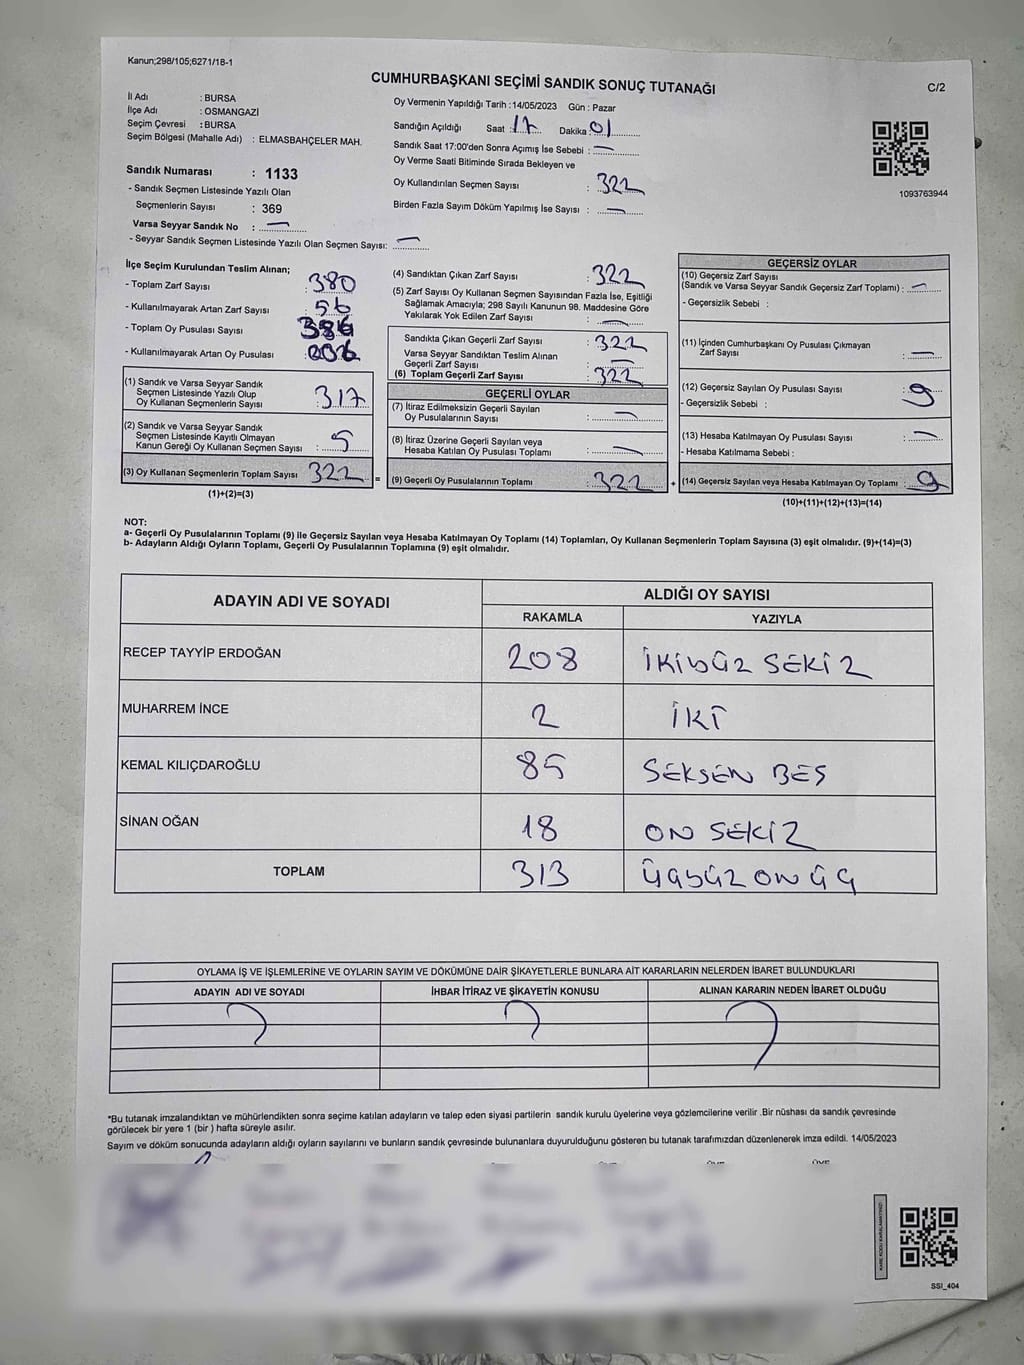 Kanun;298/105;6271/18-1
CUMHURBAŞKANI SEÇİMİ SANDIK SONUÇ TUTANAĞI
C/2
İl Adı : BURSA
İlçe Adı : OSMANGAZİ
Seçim Çevresi : BURSA
Seçim Bölgesi (Mahalle Adı) : ELMASBAHÇELER MAH.
Oy Vermenin Yapıldığı Tarih :14/05/2023 Gün : Pazar
Sandığın Açıldığı Saat : 17 Dakika : 01
Sandık Saat 17:00'den Sonra Açımış İse Sebebi : —
Oy Verme Saati Bitiminde Sırada Bekleyen ve
Oy Kullandırılan Seçmen Sayısı : 322
Birden Fazla Sayım Döküm Yapılmış İse Sayısı : —
1093763944
Sandık Numarası : 1133
- Sandık Seçmen Listesinde Yazılı Olan
Seçmenlerin Sayısı : 369
Varsa Seyyar Sandık No : —
- Seyyar Sandık Seçmen Listesinde Yazılı Olan Seçmen Sayısı: —
İlçe Seçim Kurulundan Teslim Alınan;
- Toplam Zarf Sayısı : 380
- Kullanılmayarak Artan Zarf Sayısı : 56
- Toplam Oy Pusulası Sayısı
- Kullanılmayarak Artan Oy Pusulası
(1) Sandık ve Varsa Seyyar Sandık
Seçmen Listesinde Yazılı Olup
Oy Kullanan Seçmenlerin Sayısı : 317
(2) Sandık ve Varsa Seyyar Sandık
Seçmen Listesinde Kayıtlı Olmayan
Kanun Gereği Oy Kullanan Seçmen Sayısı : 5
(3) Oy Kullanan Seçmenlerin Toplam Sayısı 322
(1)+(2)=(3)
=
(4) Sandıktan Çıkan Zarf Sayısı : 322
(5) Zarf Sayısı Oy Kullanan Seçmen Sayısından Fazla İse, Eşitliği
Sağlamak Amacıyla; 298 Sayılı Kanunun 98. Maddesine Göre
Yakılarak Yok Edilen Zarf Sayısı : —
Sandıkta Çıkan Geçerli Zarf Sayısı : 322
Varsa Seyyar Sandıktan Teslim Alınan
Geçerli Zarf Sayısı : —
(6) Toplam Geçerli Zarf Sayısı : 322
GEÇERLİ OYLAR
(7) İtiraz Edilmeksizin Geçerli Sayılan
Oy Pusulalarının Sayısı : —
(8) İtiraz Üzerine Geçerli Sayılan veya
Hesaba Katılan Oy Pusulası Toplamı : —
(9) Geçerli Oy Pusulalarının Toplamı : 322
+
GEÇERSİZ OYLAR
(10) Geçersiz Zarf Sayısı
(Sandık ve Varsa Seyyar Sandık Geçersiz Zarf Toplamı) : —
- Geçersizlik Sebebi :
(11) İçinden Cumhurbaşkanı Oy Pusulası Çıkmayan
Zarf Sayısı : —
(12) Geçersiz Sayılan Oy Pusulası Sayısı : 9
- Geçersizlik Sebebi :
(13) Hesaba Katılmayan Oy Pusulası Sayısı : —
- Hesaba Katılmama Sebebi :
(14) Geçersiz Sayılan veya Hesaba Katılmayan Oy Toplamı : 9
(10)+(11)+(12)+(13)=(14)
NOT:
a- Geçerli Oy Pusulalarının Toplamı (9) ile Geçersiz Sayılan veya Hesaba Katılmayan Oy Toplamı (14) Toplamları, Oy Kullanan Seçmenlerin Toplam Sayısına (3) eşit olmalıdır. (9)+(14)=(3)
b- Adayların Aldığı Oyların Toplamı, Geçerli Oy Pusulalarının Toplamına (9) eşit olmalıdır.
ADAYIN ADI VE SOYADI
ALDIĞI OY SAYISI
RAKAMLA YAZIYLA
RECEP TAYYİP ERDOĞAN 208 İKİYÜZ SEKİZ
MUHARREM İNCE 2 İKİ
KEMAL KILIÇDAROĞLU 85 SEKSEN BEŞ
SİNAN OĞAN 18 ON SEKİZ
TOPLAM 313 ÜÇYÜZ ON ÜÇ
OYLAMA İŞ VE İŞLEMLERİNE VE OYLARIN SAYIM VE DÖKÜMÜNE DAİR ŞİKAYETLERLE BUNLARA AİT KARARLARIN NELERDEN İBARET BULUNDUKLARI
ADAYIN ADI VE SOYADI İHBAR İTİRAZ VE ŞİKAYETİN KONUSU ALINAN KARARIN NEDEN İBARET OLDUĞU
*Bu tutanak imzalandıktan ve mühürlendikten sonra seçime katılan adayların ve talep eden siyasi partilerin sandık kurulu üyelerine veya gözlemcilerine verilir .Bir nüshası da sandık çevresinde
görülecek bir yere 1 (bir ) hafta süreyle asılır.
Sayım ve döküm sonucunda adayların aldığı oyların sayılarını ve bunların sandık çevresinde bulunanlara duyurulduğunu gösteren bu tutanak tarafımızdan düzenlenerek imza edildi. 14/05/2023
KARE KODU KARALAMAYINIZ!
SSI_404